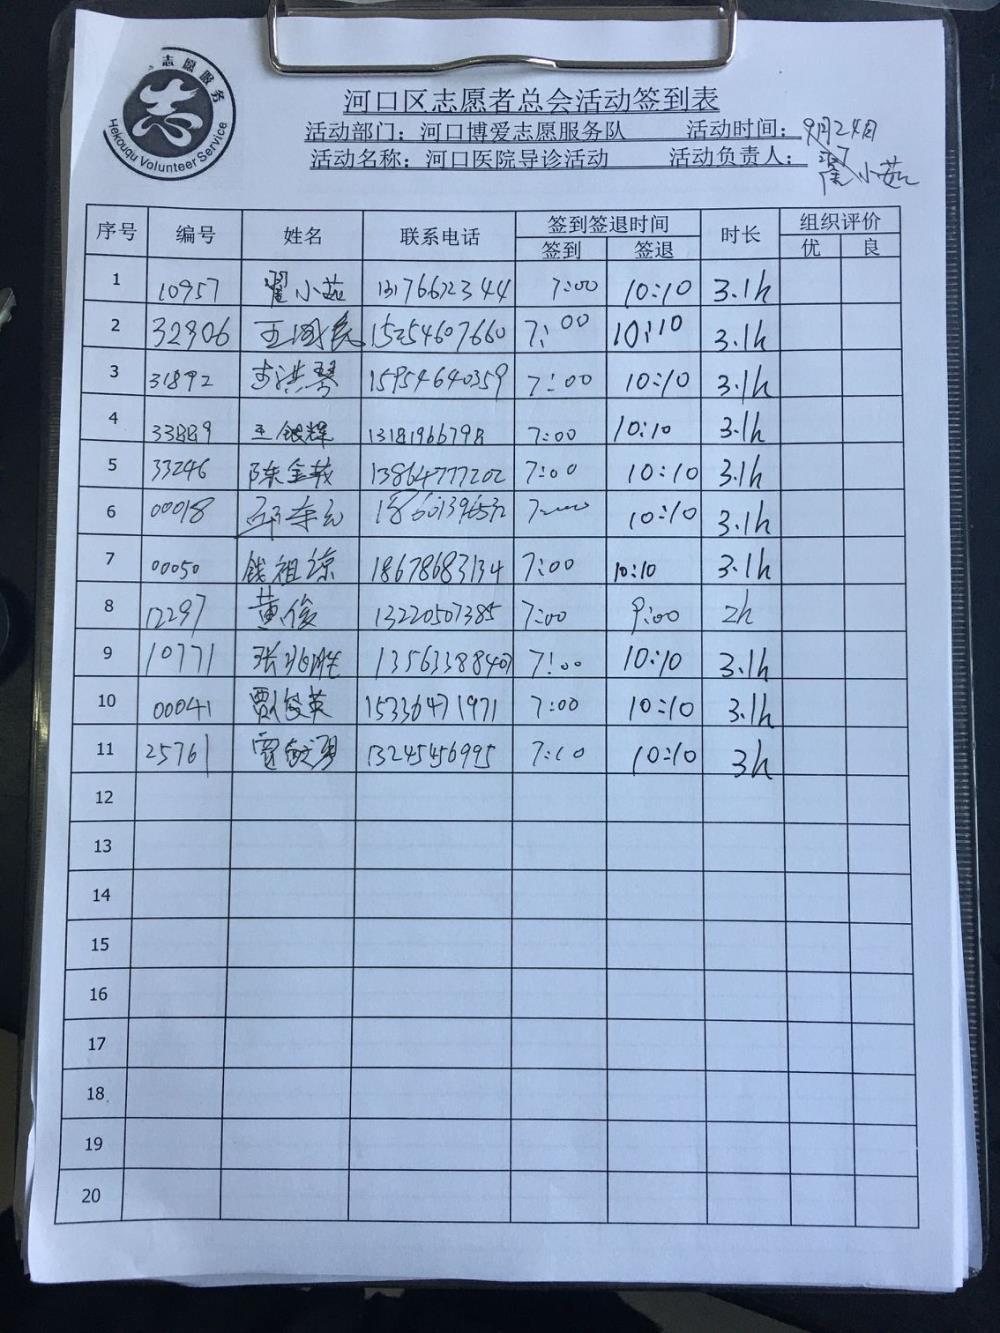 志愿服务
志
Hekouqu Volunteer Service
河口区志愿者总会活动签到表
活动部门：河口博爱志愿服务队 活动时间：9月24日
活动名称：河口医院导诊活动 活动负责人：翟小茹
序号 编号 姓名 联系电话 签到签退时间 时长 组织评价
签到 签退 优 良
1 10957 翟小茹 13176612344 7:00 10:10 3.1h
2 32906 王国民 15254607660 7:00 10:10 3.1h
3 31892 李洪琴 15954640359 7:00 10:10 3.1h
4 33889 王银辉 13181966798 7:00 10:10 3.1h
5 33246 陈金 13864777202 7:00 10:10 3.1h
6 00018 10:10 3.1h
7 00050 钱祖谅 18678683134 7:00 10:10 3.1h
8 12297 黄俊 13220507385 7:00 9:00 2h
9 10771 张兆胜 7:00 10:10 3.1h
10 00041 贾俊英 15336471971 7:00 10:10 3.1h
11 25761 13245456995 7:10 10:10 3h
12
13
14
15
16
17
18
19
20